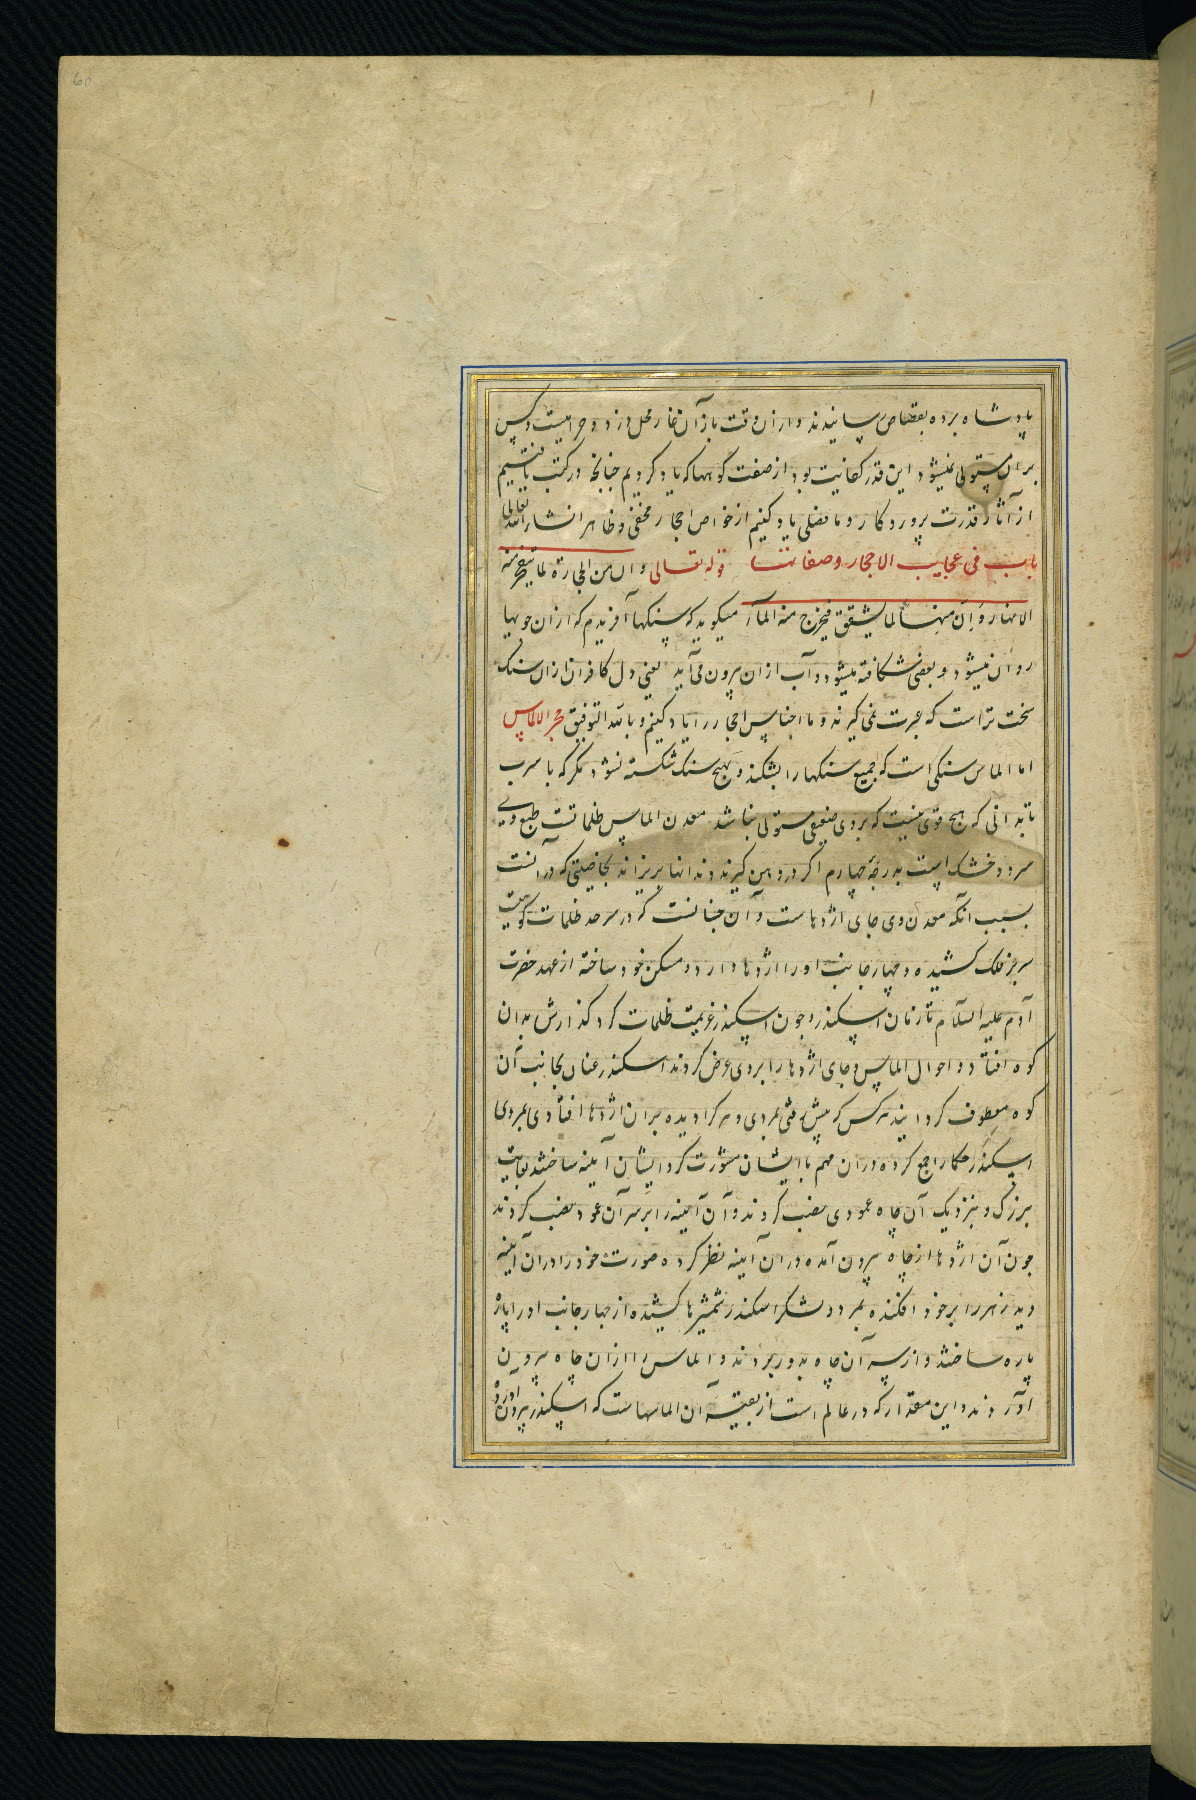 پادشاه برده بقصاص رسانیدند و از ان وقت باز آن غار محل دزد و حرامیست و کس
بران مستولی نمیشود این قدر کفایت بود از صفت کوهها که یاد کردیم چنانچه در کتب یافتیم
از آثار قدرت پروردکار و ما فصلی یاد کنیم از خواص احجار مخفی و ظاهر انشاء الله تعالی
باب فی عجایب الاحجار و صفاتها قوله تعالی و ان من الحجارة لما یتفجر منه
الانهار و ان منها لما یشقق فیخرج منه الماء میکوید که سنکها آفریدم که از ان جویها
روان میشود و بعضی شکافته میشود و آب از ان بیرون می آید یعنی دل کافران از ان سنک
سخت تر است که عبرت نمی کیرند و ما اجناس احجار را یاد کنیم و بالله التوفیق حجر الالماس
اما الماس سنکی است که جمیع سنکها را بشکند و بهیچ سنک شکسته نشود مکر که با سرب
تا بدانی که هیچ قوی نیست که بر وی ضعیفی مستولی نباشد معدن الماس ظلماتست طبع وی
سرد و خشک است بدرجهٔ چهارم اکر در دهن کیرند دندانها بریزاند بخاصیتی که در آنست
بسبب آنکه معدن وی جای اژدهاست و آن چنانست که در سرحد ظلمات کوهیست
سر بر فلک کشیده و چهار جانب او را اژدها دارد و مسکن خود ساخته از عهد حضرت
آدم علیه السلام تا زمان اسکندر و چون اسکندر عزیمت ظلمات کرد کذارش بدان
کوه افتاد و احوال الماس و جای اژدها را بر وی عرض کردند اسکندر عنان بجانب آن
کوه معطوف کردانید هر کس که پیش رفتی بمردی و هر کرا دیده بران اژدها افتادی بمردی
اسکندر حکما را جمع کرده دران مهم با ایشان مشورت کرد ایشان آینه ساختند بغایت
بزرک و بنزدیک آن چاه عمودی نصب کردند و آن آینه را بر سر آن عمود نصب کردند
چون آن اژدها از چاه بیرون آمده دران آینه نظر کرده صورت خود را دران آینه
دید زهر را بر خود افکنده بمرد و لشکر اسکندر شمشیرها کشیده از چهار جانب او را پاره
پاره ساختند و از سر آن چاه بدور بردند و الماس را از ان چاه بیرون
آوردند و این مقدار که در عالم است از بقیهٔ آن الماسهاست که اسکندر بیرون آورده